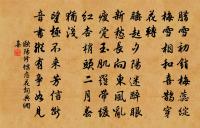 臘雪初銷梅蕊綻
梅雪相和喜鵲穿
花轉
睡起夕陽迷醉眼
新愁長向東風亂
瘦覺玉肌羅帶緩
紅杏梢頭二月春
猶淺
望極不來芳信斷
音書縱有爭如見
歐陽修
集